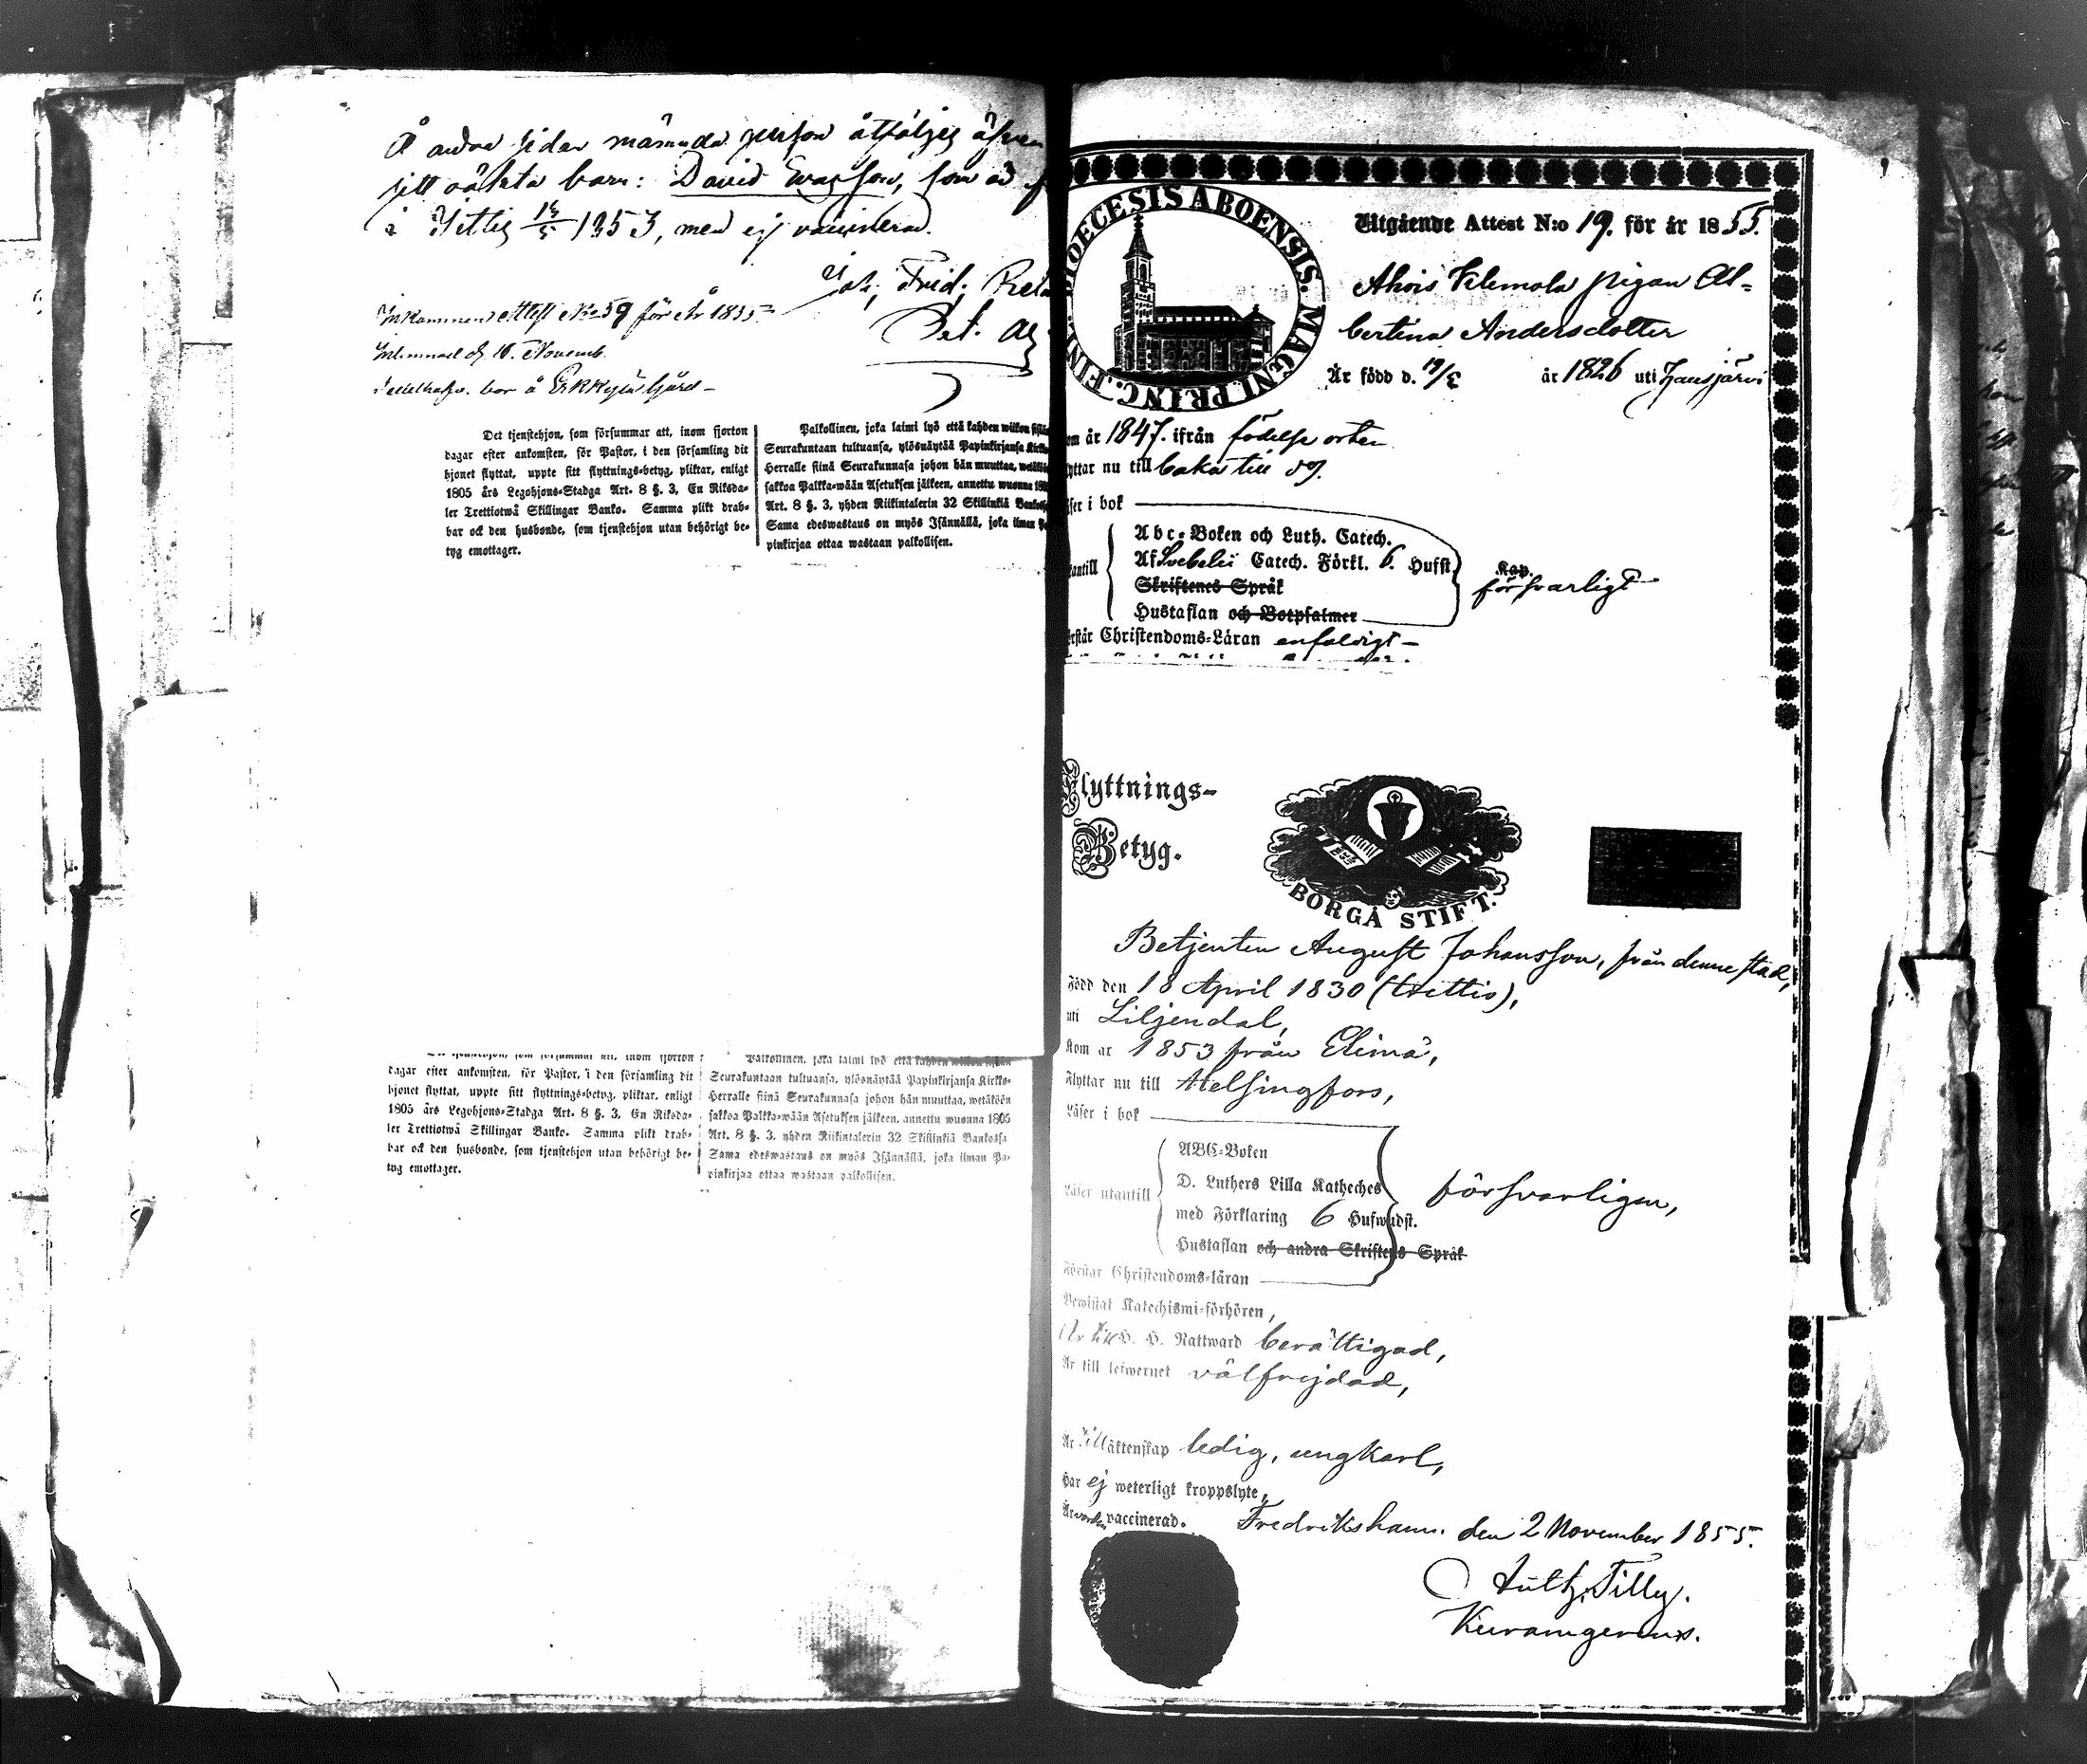 Å andra sidan nämnde person åtföljes äfven
sitt oäkta barn: David Evasson, som är
i Jittis 14/5 1853, men ej vaccinerad.
Joh. Frid.
Inkommen Attest No 59 för År 1855
Inlemnad d. 10. Novemb.
bor å
Det tjenstehjon, som försummar att, inom fjorton
dagar efter ankomsten, för Pastor, i den församling dit
hjonet flyttat, uppte sitt flyttnings-betyg, pliktar, enligt
1805 års Legohjons-Stadga Art. 8 §. 3, En Riksda-
ler Trettiotwå Skillingar Banko. Samma plikt drab-
bar ock den husbonde, som tjenstehjon utan behörigt be-
tyg emottager.
Palkollinen, joka laimi lyö että kahden wiikon sisään
Seurakuntaan tultuansa, ylösnäytää Papinkirjansa Kirkko-
Herralle siinä Seurakunnasa johon hän muuttaa, wetäköön
sakkoa Palkka-wään Asetuksen jälkeen, annettu wuonna 1805
Art. 8 §. 3, yhden Riikintalerin 32 Skillinkiä Bankossa
Sama edeswastaus on myös Isännällä, joka ilman Pa-
pinkirjaa ottaa wastaan palkollisen.
dagar efter ankomsten, för Pastor, i den församling dit
hjonet flyttat, uppte sitt flyttnings-betyg, pliktar, enligt
1805 års Legohjons-Stadga Art. 8 §. 3, En Riksda-
ler Trettiotwå Skillingar Banko. Samma plikt drab-
bar ock den husbonde, som tjenstehjon utan behörigt be-
tyg emottager.
Palkollinen, joka laimi lyö että kahden wiikon sisään
Seurakuntaan tultuansa, ylösnäytää Papinkirjansa Kirkko-
Herralle siinä Seurakunnasa johon hän muuttaa, wetäköön
sakkoa Palkka-wään Asetuksen jälkeen, annettu wuonna 1805
Art. 8 §. 3, yhden Riikintalerin 32 Skillinkiä Bankossa
Sama edeswastaus on myös Isännällä, joka ilman Pa-
pinkirjaa ottaa wastaan palkollisen.
DIOECESIS ABOENSIS. MAGNI PRINC. FINL.
Utgående Attest N:o 19. för år 1855.
Ahois Klemola pigan Al-
bertina Andersdotter
Är född d. 19/3 år 1826 uti Hausjärvi
om år 1847. ifrån födelse orten
yttar nu till baka till dg.
äser i bok
antill
Abc-Boken och Luth. Catech.
Af Svebelii Catech. Förkl. 6. Hufst.
Skriftenes Språk
Hustaflan och Botpsalmer
Kap.
försvarligt
örstår Christendoms-Läran enfaldigt
Flyttnings-
Betyg.
BORGÅ STIFT.
Betjenten August Johansson, från denne stad,
Född den 18 April 1830 (trettio),
uti Liljendal,
Kom år 1853 från Elimä,
Flyttar nu till Helsingfors,
Läser i bok
Läser utantill
ABC-Boken
D. Luthers Lilla Katheches
med Förklaring 6 Hufwudst.
Hustaflan och andra Skriftens Språk
försvarligen,
Förstår Christendoms-läran
Bewistat Katechismi-förhören,
Är till H. H. Nattward berättigad,
Är till lefwernet välfrejdad,
Är till äktenskap ledig, ungkarl,
Har ej weterligt kroppslyte,
Är worden vaccinerad.
Fredrikshamn. den 2 November 1855.
Tilly.